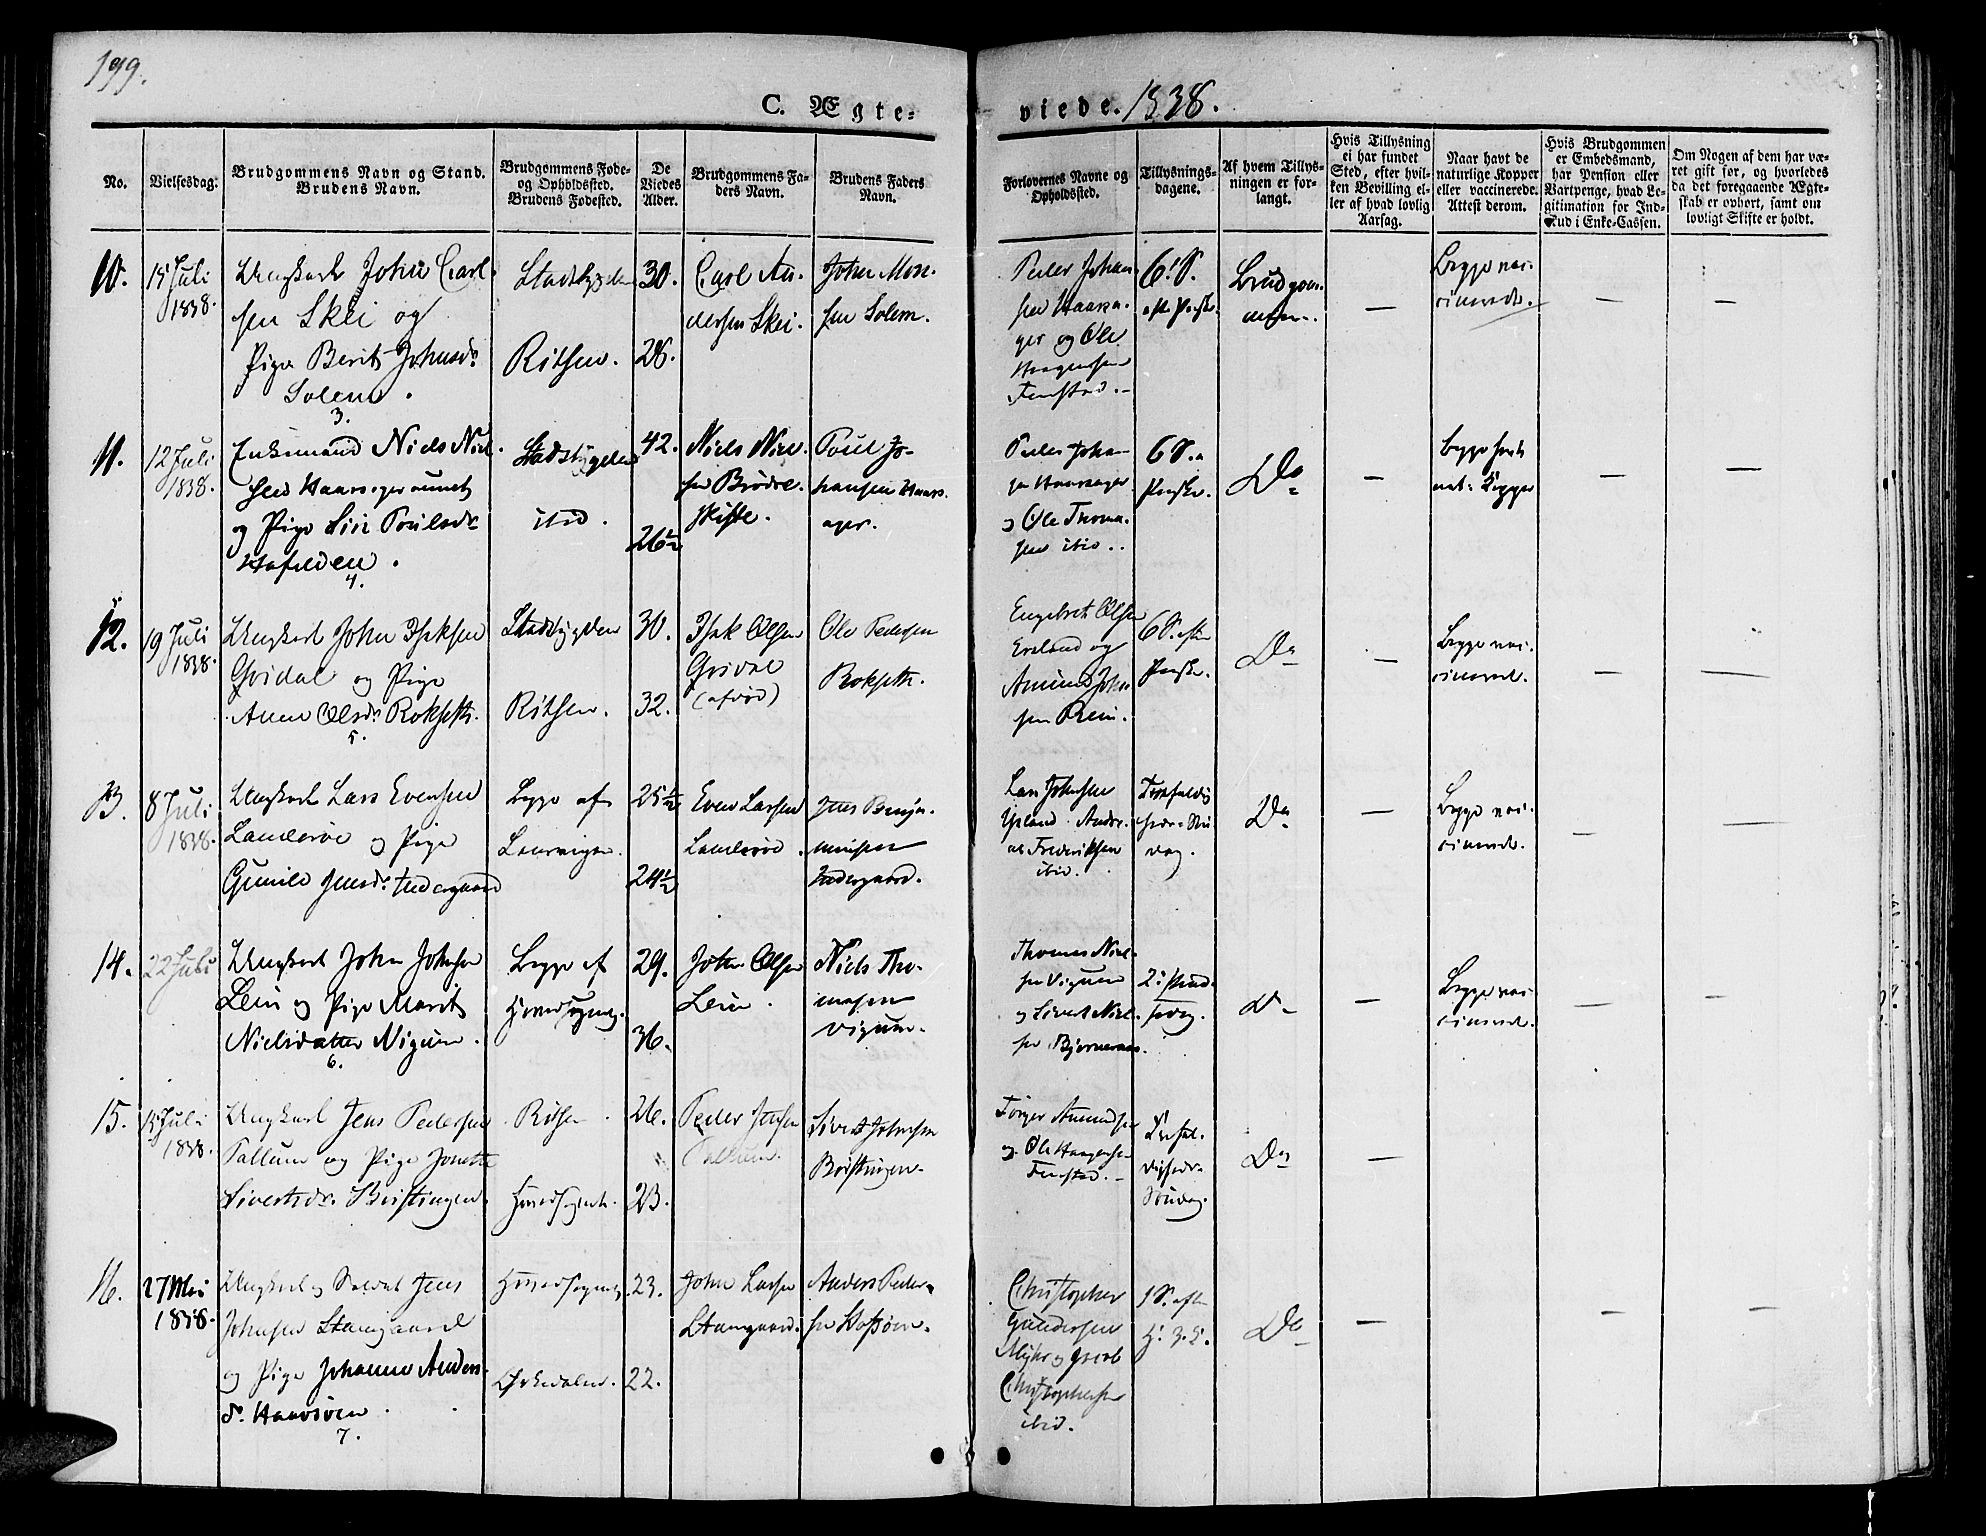 199.
C. Ægte= viede. 1838.
No.
Vielsesdag.
Brudgommens Navn og Stand.
Brudens Navn.
Brudgommens Føde-
og Opholdssted.
Brudens Fødested.
De
Viedes
Alder.
Brudgommens Fa-
ders Navn.
Brudens Faders
Navn.
Forlovernes Navne og
Opholdssted.
Tillysnings-
dagene.
Af hvem Tillys-
ningen er for-
langt.
Hvis Tillysning
ei har fundet
Sted, efter hvil-
ken Bevilling el-
ler af hvad lovlig
Aarsag.
Naar havt de
naturlige Kopper
eller vaccinerede.
Attest derom.
Hvis Brudgommen
er Embedsmand,
har Pension eller
Vartpenge, hvad Le-
gitimation for Ind-
skud i Enke-Cassen.
Om Nogen af dem har væ-
ret gift før, og hvorledes
da det foregaaende Ægte-
skab er ophørt, samt om
lovligt Skifte er holdt.
10.
15 Juli
1838.
Ungkarl John Carl-
sen Skei og
Pige Berit Johnsdr
Solem.
3.
Stadsbygden
Ritsen.
30.
28.
Carl An-
dersen Skei.
John Mon-
sen Solem.
Peder Johan-
sen Haarsa-
ger og Ole
Haagensen
Fenstad.
6. S.
eft. Paaske.
Brudgom-
men.
Begge vac-
cinerede.
11.
12 Juli
1838.
Enkemand Niels Niel-
sen Haarsager
og Pige Siri Poulsdr
4.
Stadsbygden
ibid.
42.
26½
Niels Niel-
sen
Poul Jo-
hansen Haars-
ager.
Peder Johan-
sen Haarsager
og Ole Thoma-
sen ibid.
6 S. e.
Paaske.
Do
Begge havt
nat: Kopper
12.
19 Juli
1838.
Ungkarl John Isaksen
Gridal og Pige
Anne Olsdr Rokseth.
5.
Stadsbygden
Ritsen.
30.
32.
Isak Olsen
Gridal
(afdød)
Ole Pedersen
Rokseth.
Engebret Olsen
og
Amund John-
sen Rein.
6 S. efter
Paaske.
Do
Begge vac-
cinerede.
13.
8 Juli
1838.
Ungkarl Lars Evensen
og Pige
Gunild Jensdr Indergaard
Begge af
Lensvigen.
25½
24½
Even Larsen
Jens Benja-
minsen
Indergaard.
Lars Johnsen
Andre-
as Frederiksen
ibid.
Trefoldig-
heds-Sön-
dag.
Do
Begge vac-
cinerede.
14.
22 Juli
Ungkarl John Johnsen
Lein og Pige Marit
Nielsdatter Vigum.
6.
Begge af
Hovedsognet.
29.
36.
John Olsen
Lein.
Niels Tho-
masen
Vigum.
Thomas Niel-
sen Vigum
og Sivert Niel-
sen Bjørnernes.
2. Pind-
sedag.
Do
Begge vac-
cinerede.
15.
15 Juli
1838.
Ungkarl Jens Pedersen
Tallum og Pige Jonette
Sivertsdr. Bristingen.
Ritsen
Hovedsognet.
26.
23.
Peder Jensen
Tallum.
Sivert Johnsen
Bristingen.
Torger Amundsen
og Ole Haagensen
Fenstad.
Trefol-
digheds-
Söndag.
Do
16.
27 Mai
1838.
Ungkarl og Soldat Jens
Johnsen Stamgaard
og Pige Johanne Anders-
d.
7.
Hovedsognet.
Ørkedalen.
23.
22.
John Larsen
Stamgaard.
Anders Peder-
sen
Christopher
Gundersen
Myhr og Jacob
Christophersen
ibid.
1 S. eft.
H. 3. K.
Do